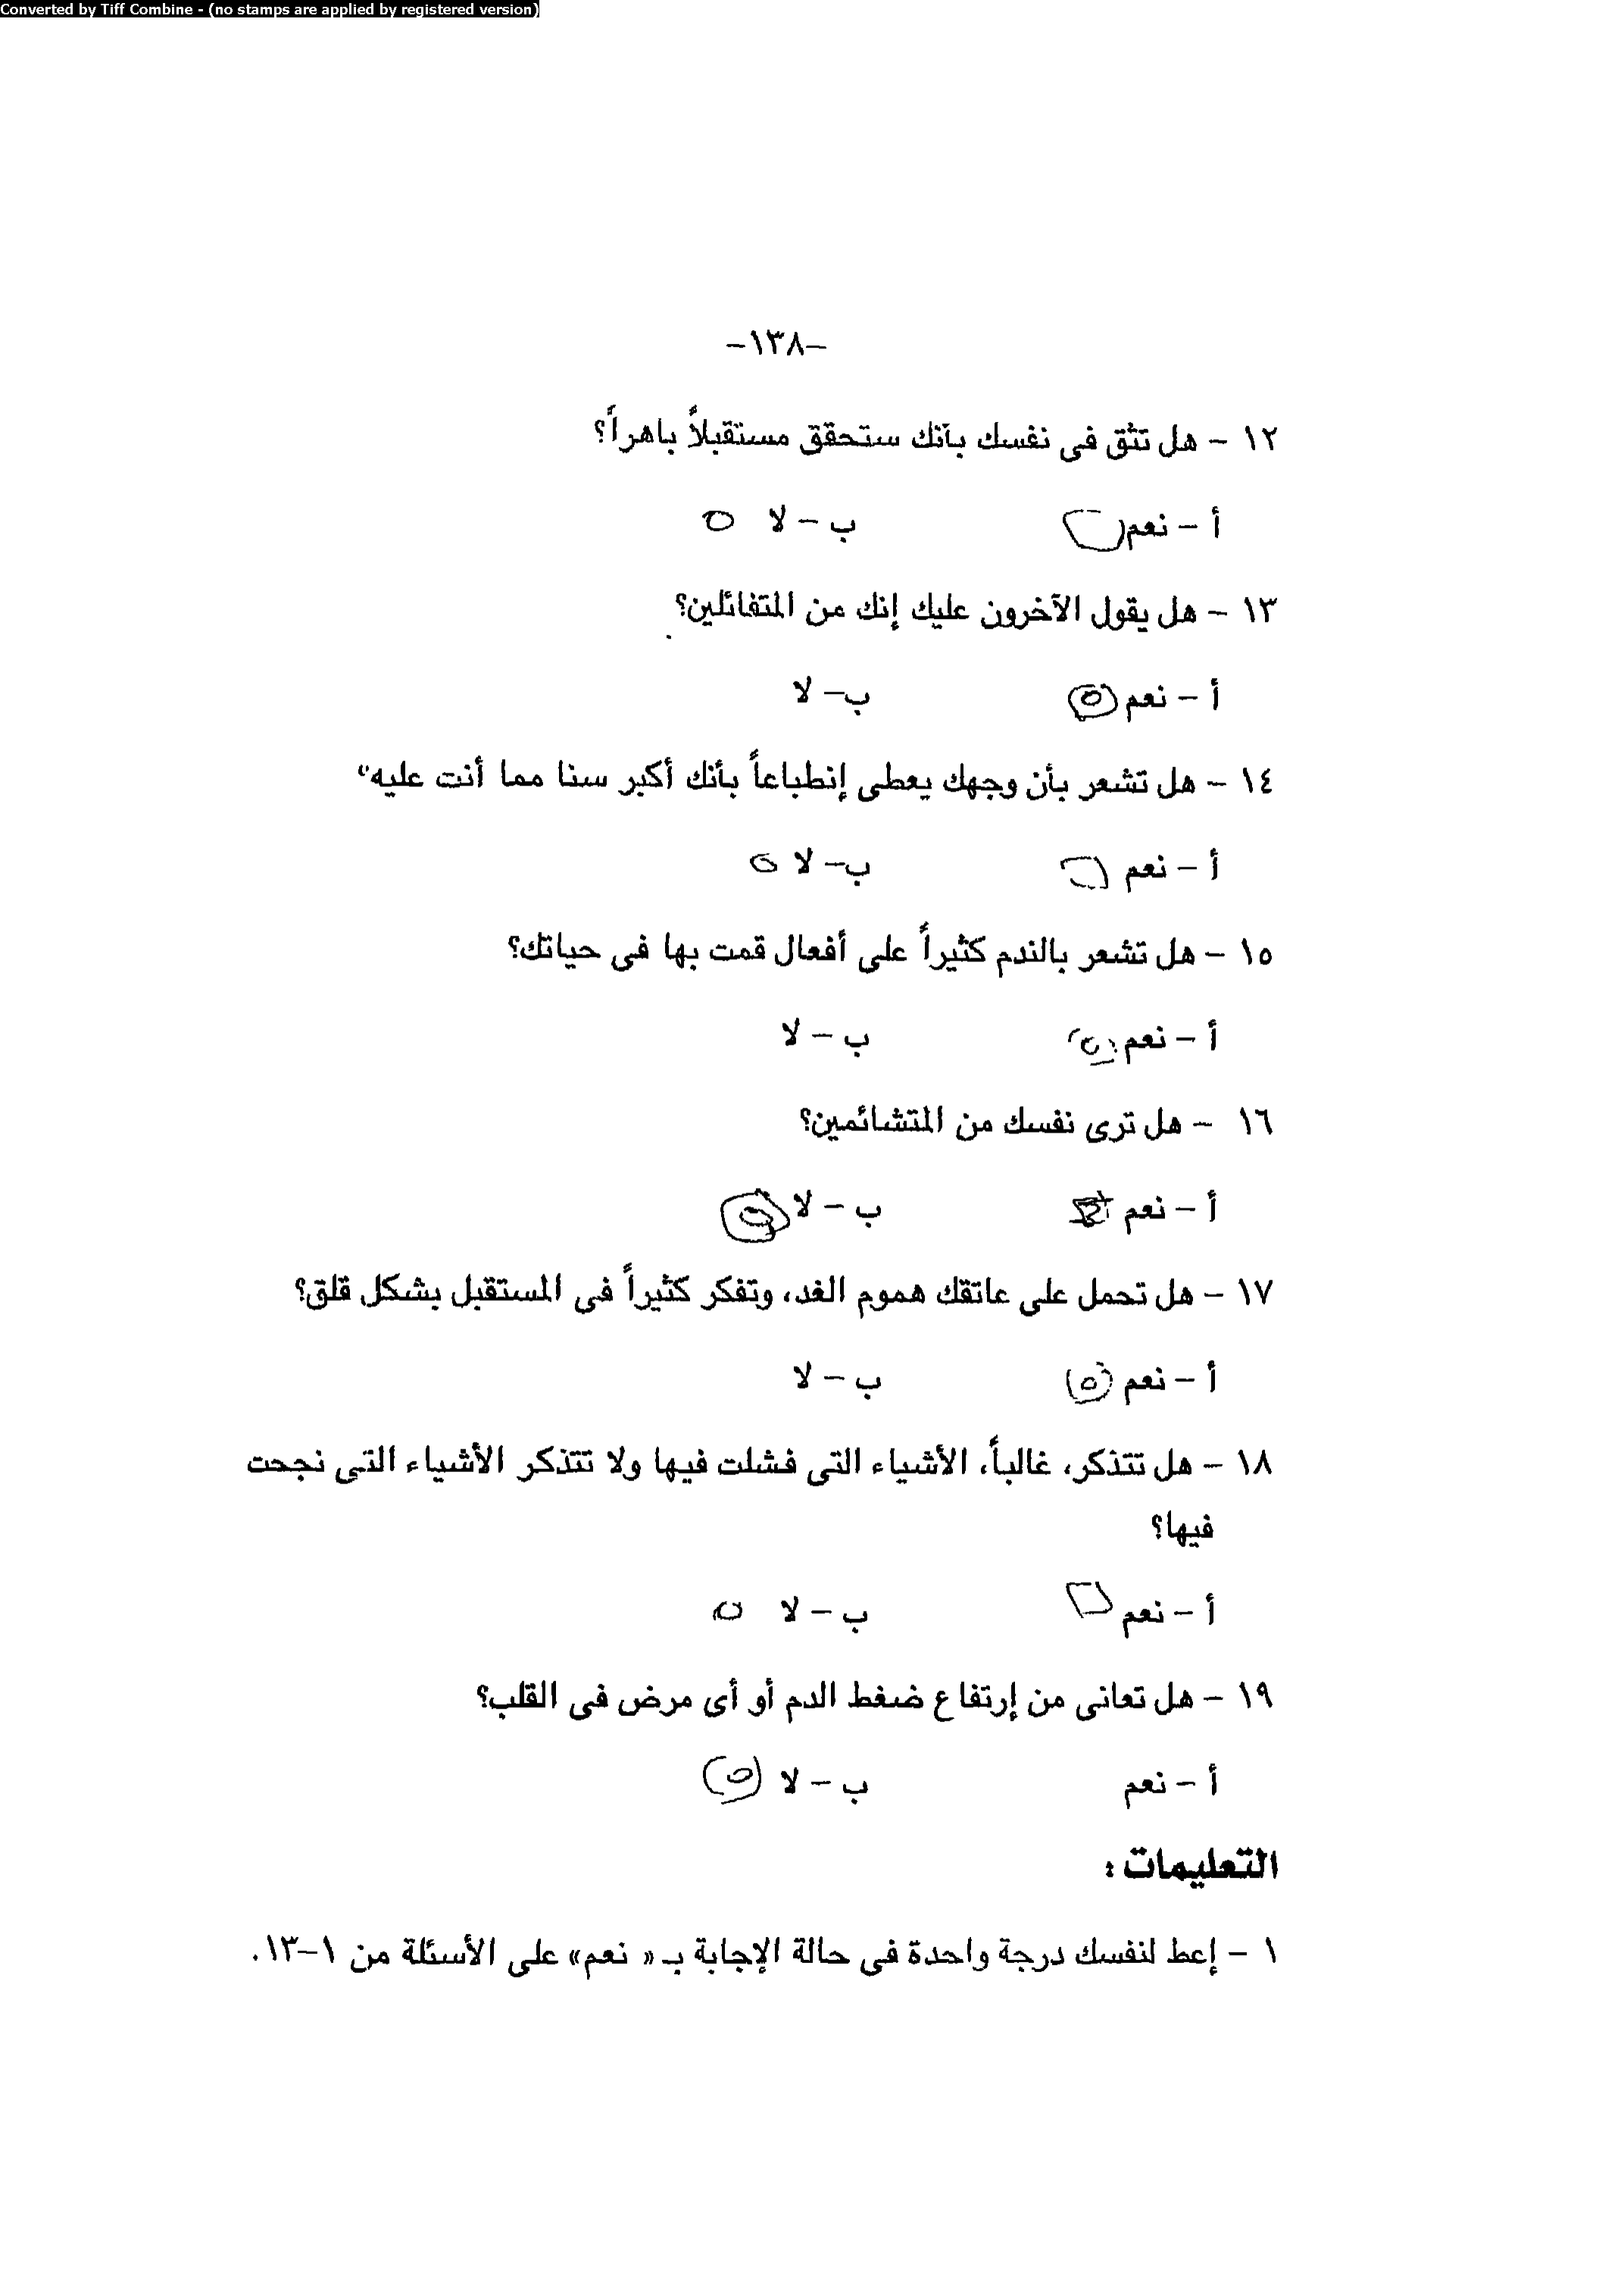 Converted by Tiff Combine - (no stamps are applied by registered version)
-١٣٨-
١٢ - هل تثق فى نفسك بأنك ستحقق مستقبلاً باهراً؟
أ - نعم ب - لا
١٣ - هل يقول الآخرون عليك إنك من المتفائلين؟
أ - نعم ب- لا
١٤ - هل تشعر بأن وجهك يعطى إنطباعاً بأنك أكبر سنا مما أنت عليه؟
أ - نعم ب- لا
١٥ - هل تشعر بالندم كثيراً على أفعال قمت بها فى حياتك؟
أ - نعم ب - لا
١٦ - هل ترى نفسك من المتشائمين؟
أ - نعم ب - لا
١٧ - هل تحمل على عاتقك هموم الغد، وتفكر كثيراً فى المستقبل بشكل قلق؟
أ - نعم ب - لا
١٨ - هل تتذكر، غالباً، الأشياء التى فشلت فيها ولا تتذكر الأشياء التى نجحت
فيها؟
أ - نعم ب - لا
١٩ - هل تعانى من إرتفاع ضغط الدم أو أى مرض فى القلب؟
أ - نعم ب - لا
التعليمات :
١ - إعط لنفسك درجة واحدة فى حالة الإجابة بـ « نعم» على الأسئلة من ١-١٣.